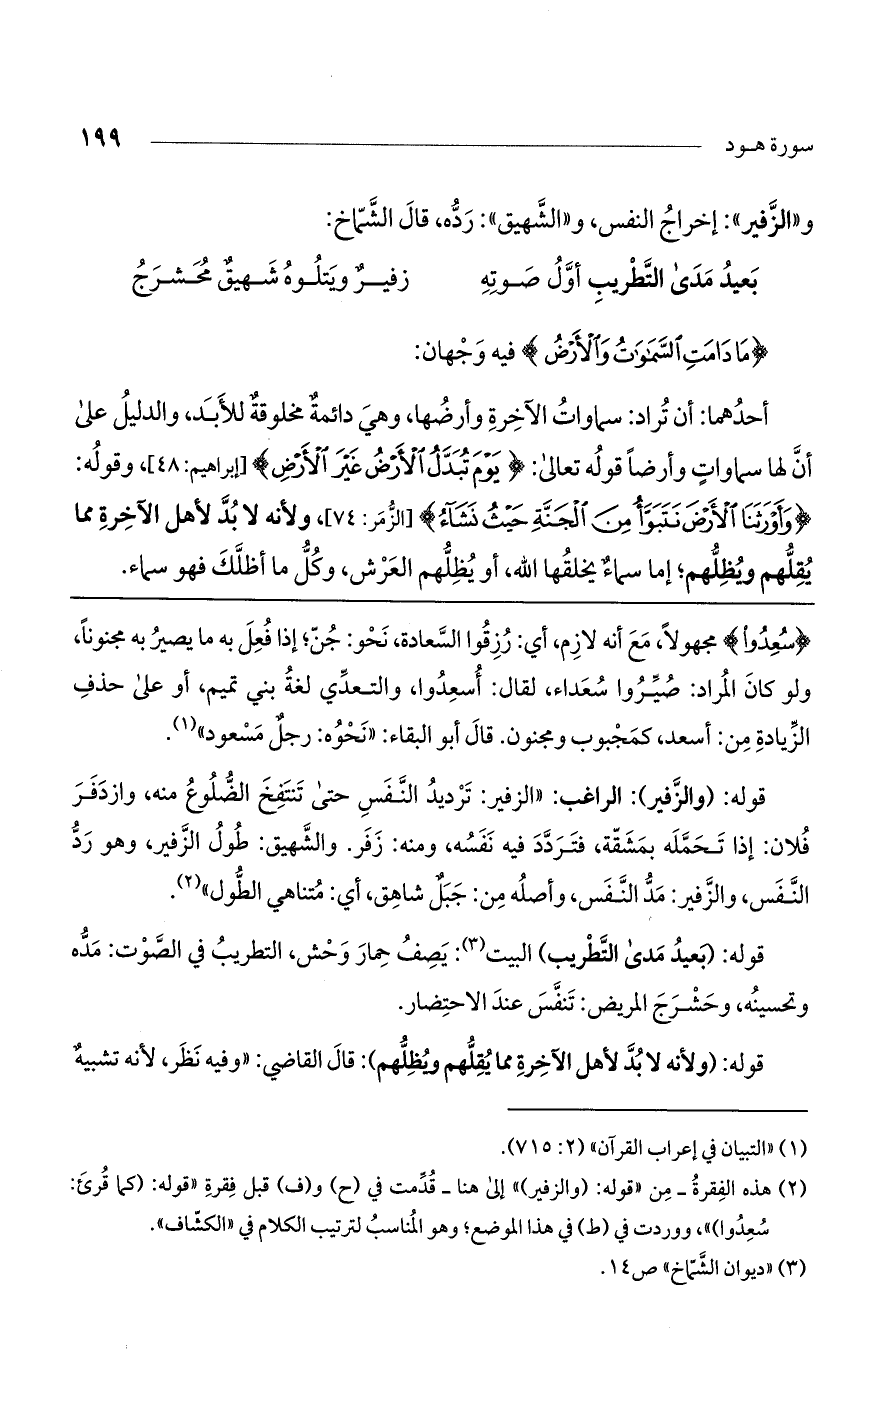 سورة هـود ١٩٩
و«الزَّفير»: إخراجُ النفس، و«الشَّهيق»: رَدُّه، قالَ الشَّمّاخ:
بَعيدُ مَدَىٰ التَّطْريبِ أوَّلُ صَـوتِهِ زفيـرٌ ويَتلُـوهُ شَـهيقٌ مُحَـشرَجُ
﴿مَا دَامَتِ ٱلسَّمَٰوَٰتُ وَٱلْأَرْضُ﴾ فيه وَجْهان:
أحدُهما: أن تُراد: سماواتُ الآخِرةِ وأرضُها، وهيَ دائمةٌ مخلوقةٌ للأبَـد، والدليلُ علىٰ
أنَّ لها سماواتٍ وأرضاً قولُه تعالىٰ: ﴿يَوْمَ تُبَدَّلُ ٱلْأَرْضُ غَيْرَ ٱلْأَرْضِ﴾ [إبراهيم: ٤٨]، وقولُه:
﴿وَأَوْرَثَنَا ٱلْأَرْضَ نَتَبَوَّأُ مِنَ ٱلْجَنَّةِ حَيْثُ نَشَآءُ﴾ [الزُّمَر: ٧٤]، ولأنه لا بُدَّ لأهل الآخِرةِ مما
يُقِلُّهم ويُظِلُّهم؛ إما سماءٌ يخلقُها الله، أو يُظِلُّهم العَرْش، وكُلُّ ما أظلَّكَ فهو سماء.
﴿سُعِدُواْ﴾ مجهولاً، مَعَ أنه لازِم، أي: رُزِقُوا السَّعادة، نَحْو: جُنّ؛ إذا فُعِلَ به ما يصيرُ به مجنوناً،
ولو كانَ المُراد: صُيِّـرُوا سُعَداء، لقال: أُسعِدُوا، والتـعدِّي لغةُ بني تميم، أو علىٰ حذفِ
الزِّيادةِ مِن: أسعد، كمَجْبوب ومجنون. قالَ أبو البقاء: «نَحْوُه: رجلٌ مَسْعود»(١).
قوله: (والزَّفير): الراغب: «الزفير: تَرْديدُ النَّـفَسِ حتىٰ تَنتَفِخَ الضُّلُوعُ منه، وازدَفَـرَ
فُلان: إذا تَـحَمَّلَه بمَشَقّة، فتَـرَدَّدَ فيه نَفَسُه، ومنه: زَفَر. والشَّهيق: طُولُ الزَّفير، وهو رَدُّ
النَّـفَس، والزَّفير: مَدُّ النَّـفَس، وأصلُه مِن: جَبَلٌ شاهِق، أي: مُتناهي الطُّول»(٢).
قوله: (بَعيدُ مَدىٰ التَّطْريب) البيت(٣): يَصِفُ حِمارَ وَحْش، التطريبُ في الصَّوْت: مَدُّه
وتحسينُه، وحَشْـرَجَ المريض: تَنفَّسَ عندَ الاحتِضار.
قوله: (ولأنه لا بُدَّ لأهل الآخِرةِ مما يُقِلُّهم ويُظِلُّهم): قالَ القاضي: «وفيه نَظَر، لأنه تشبيهٌ
(١) «التبيان في إعراب القرآن» (٢: ٧١٥).
(٢) هذه الفِقرةُ ـ مِن «قوله: (والزفير)» إلىٰ هنا ـ قُدِّمت في (ح) و(ف) قبل فِقرةِ «قوله: (كما قُرئَ:
سُعِدُوا)»، ووردت في (ط) في هذا الموضع؛ وهو المُناسبُ لترتيب الكلام في «الكشّاف».
(٣) «ديوان الشَّمّاخ» ص١٤.